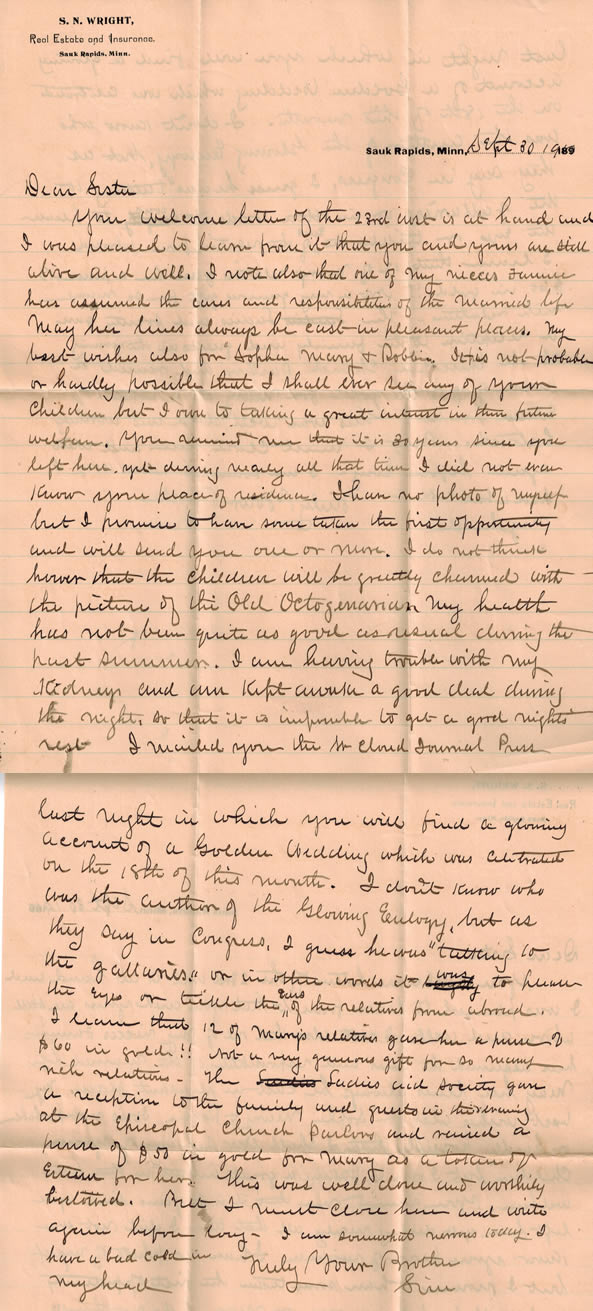 S. N. WRIGHT,
Real Estate and Insurance.
Sauk Rapids, Minn.
Sauk Rapids, Minn, Sept 30 1900 189
Dear Sister
Your welcome letter of the 23rd inst is at hand and
I was pleased to learn from it that you and yours are still
alive and well. I note also that one of my nieces Fannie
has assumed the cares and responsibilities of the married life
May her lines always be cast in pleasant places. My
best wishes also for Sopha Mary & Robbin. It is not probable
or hardly possible that I shall ever see any of your
children but I own to taking a great interest in their future
welfare. You remind me that it is 30 years since you
left here. yet during nearly all that time I did not even
know your place of residence. I have no photo of myself
but I promise to have some taken the first opportunity
and will send you one or more. I do not think
hower that the children will be greatly charmed with
the picture of the Old Octogenarian My health
has not been quite as good as usual during the
past summer. I am having trouble with my
Kidneys and am kept awake a good deal during
the night. so that it is impossible to get a good nights
rest I mailed you the St Cloud Journal Press
last night in which you will find a glowing
account of a Golden Wedding which was celebrated
on the 18th of this month. I don't know who
was the author of the Glowing Eulogy, but as
they say in Congress, I guess he was "talking to
the gallaries." or in other words it was to please
the Eyes or tickle the Ears of the relatives from abroad.
I learn that 12 of Mary's relatives gave her a purse of
$60 in gold!! Not a very generous gift for so many
rich relations - The Ladies aid society gave
a reception to the family and guests in the evening
at the Episcopal Church Parlors and raised a
purse of $50 in gold for Mary as a token of
Esteem for her. This was well done and worthily
bestowed. But I must close here and write
again before long - I am somewhat nervous today. I
have a bad cold in
my head
Truly Your Brother
Sim